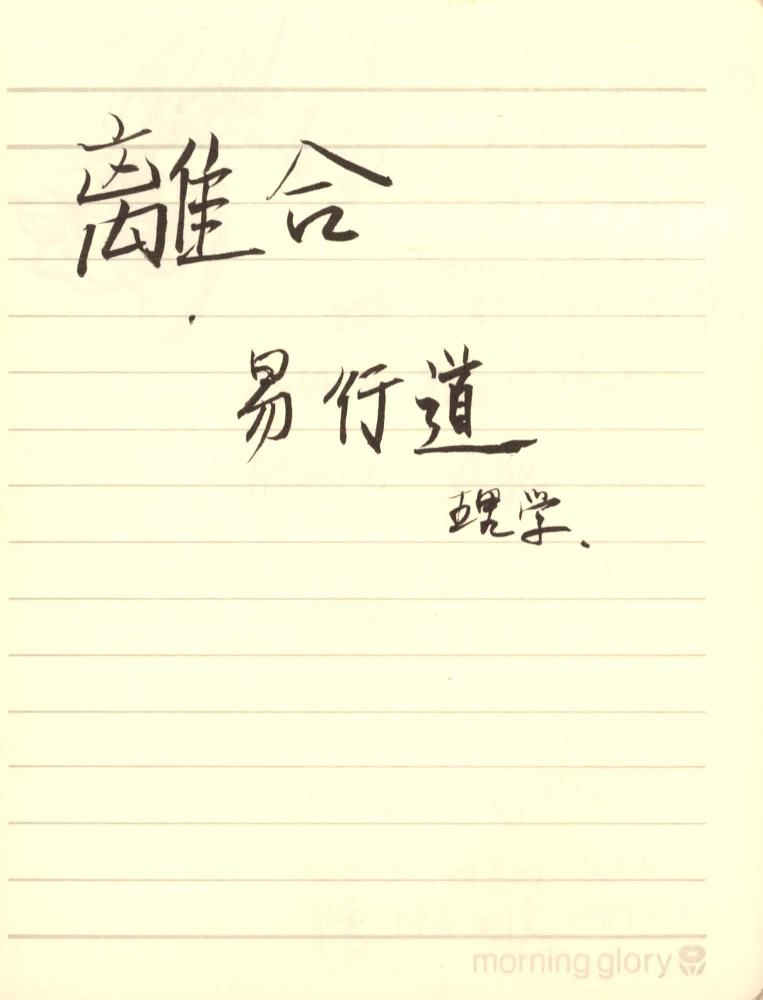 離合
易行道
理学、
morning glory